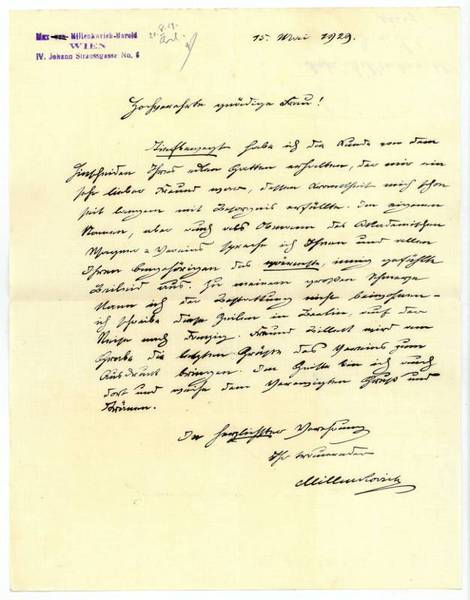 Max von Millenkovich-Morold
WIEN
IV. Johann Straussgasse No. 6
15. Mai 1929.
Hochverehrte gnädige Frau!
Tiefbewegt habe ich die Kunde von dem
Hinscheiden Ihres edlen Gatten erhalten, der mir ein
sehr lieber Freund war, dessen Krankheit mich schon
seit langem mit Besorgnis erfüllte. Im eigenen
Namen, aber auch als Obmann des Akademischen
Wagner-Vereins spreche ich Ihnen und allen
Ihren Angehörigen das wärmste, innig gefühlte
Beileid aus. Zu meinem großen Schmerze
kann ich der Bestattung nicht beiwohnen –
ich schreibe diese Zeilen in Berlin, auf der
Reise nach Danzig. Freund Zillert wird am
Grabe die letzten Grüße des Vereins zum
Ausdruck bringen. Im Geiste bin ich auch
dort und weihe dem Verewigten Gruß und
Tränen.
In herzlichster Verehrung
Ihr trauernder
Millenkovich